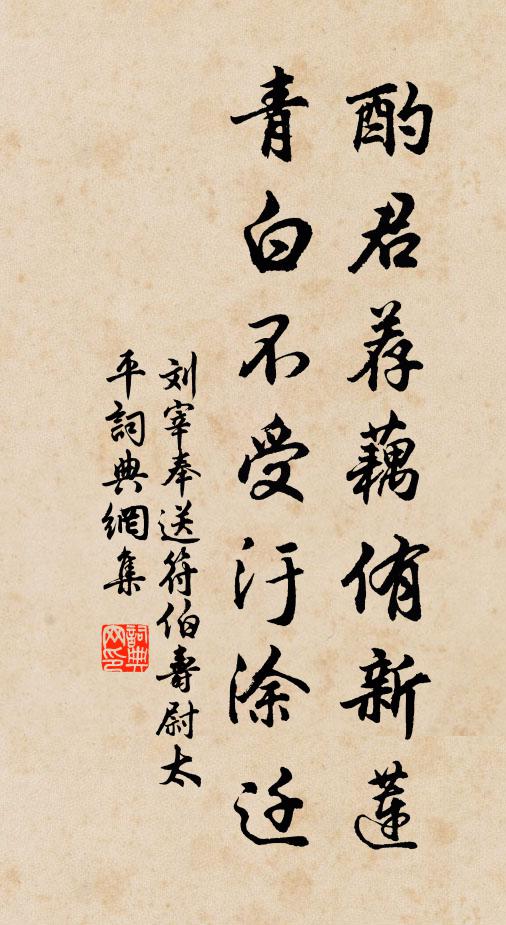 酌君荐藕侑新莲
青白不受汙涂迁
刘宰奉送符伯寿尉太
平詞典網集
詞典網印